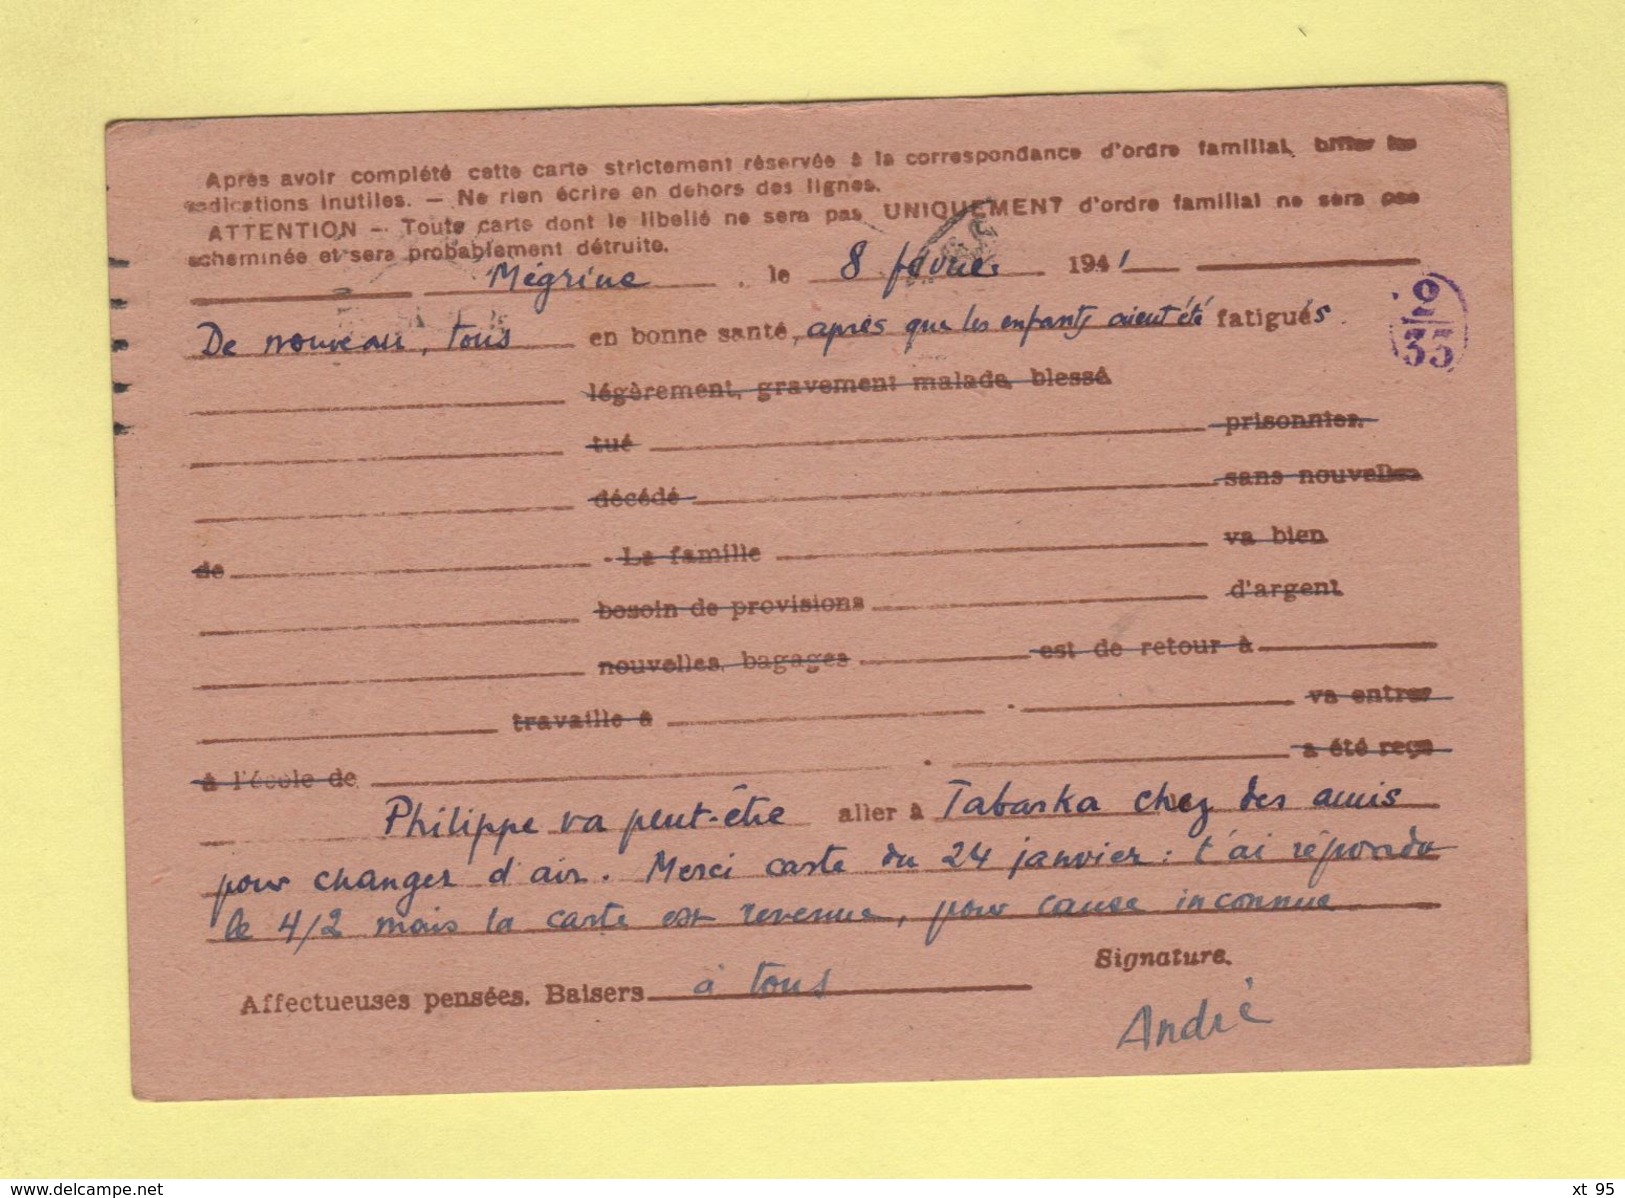 Après avoir complété cette carte strictement réservée à la correspondance d'ordre familial, biffer les
indications inutiles. — Ne rien écrire en dehors des lignes.
ATTENTION — Toute carte dont le libellé ne sera pas UNIQUEMENT d'ordre familial ne sera pas
acheminée et sera probablement détruite.
Mégrine, le 8 février 1941
De nouveau, tous en bonne santé, après que les enfants aient été fatigués.
légèrement, gravement malade, blessé
tué prisonnier.
décédé sans nouvelles
de . La famille va bien
besoin de provisions d'argent
nouvelles, bagages est de retour à
travaille à . va entrer
à l'école de . a été reçu
Philippe va peut-être aller à Tabarka chez des amis
pour changer d'air. Merci carte du 24 janvier : t'ai répondu
le 4/2 mais la carte est revenue, pour cause inconnue
Signature.
Affectueuses pensées. Baisers à tous
André
9
35
www.delcampe.net
xt 95